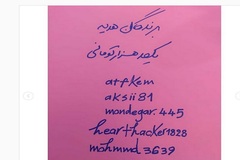 برندگان هدیه
یکصد هزار تومانی
atfkem
aksii81
mandegar.445
hearthacker1828
mohmmd3639